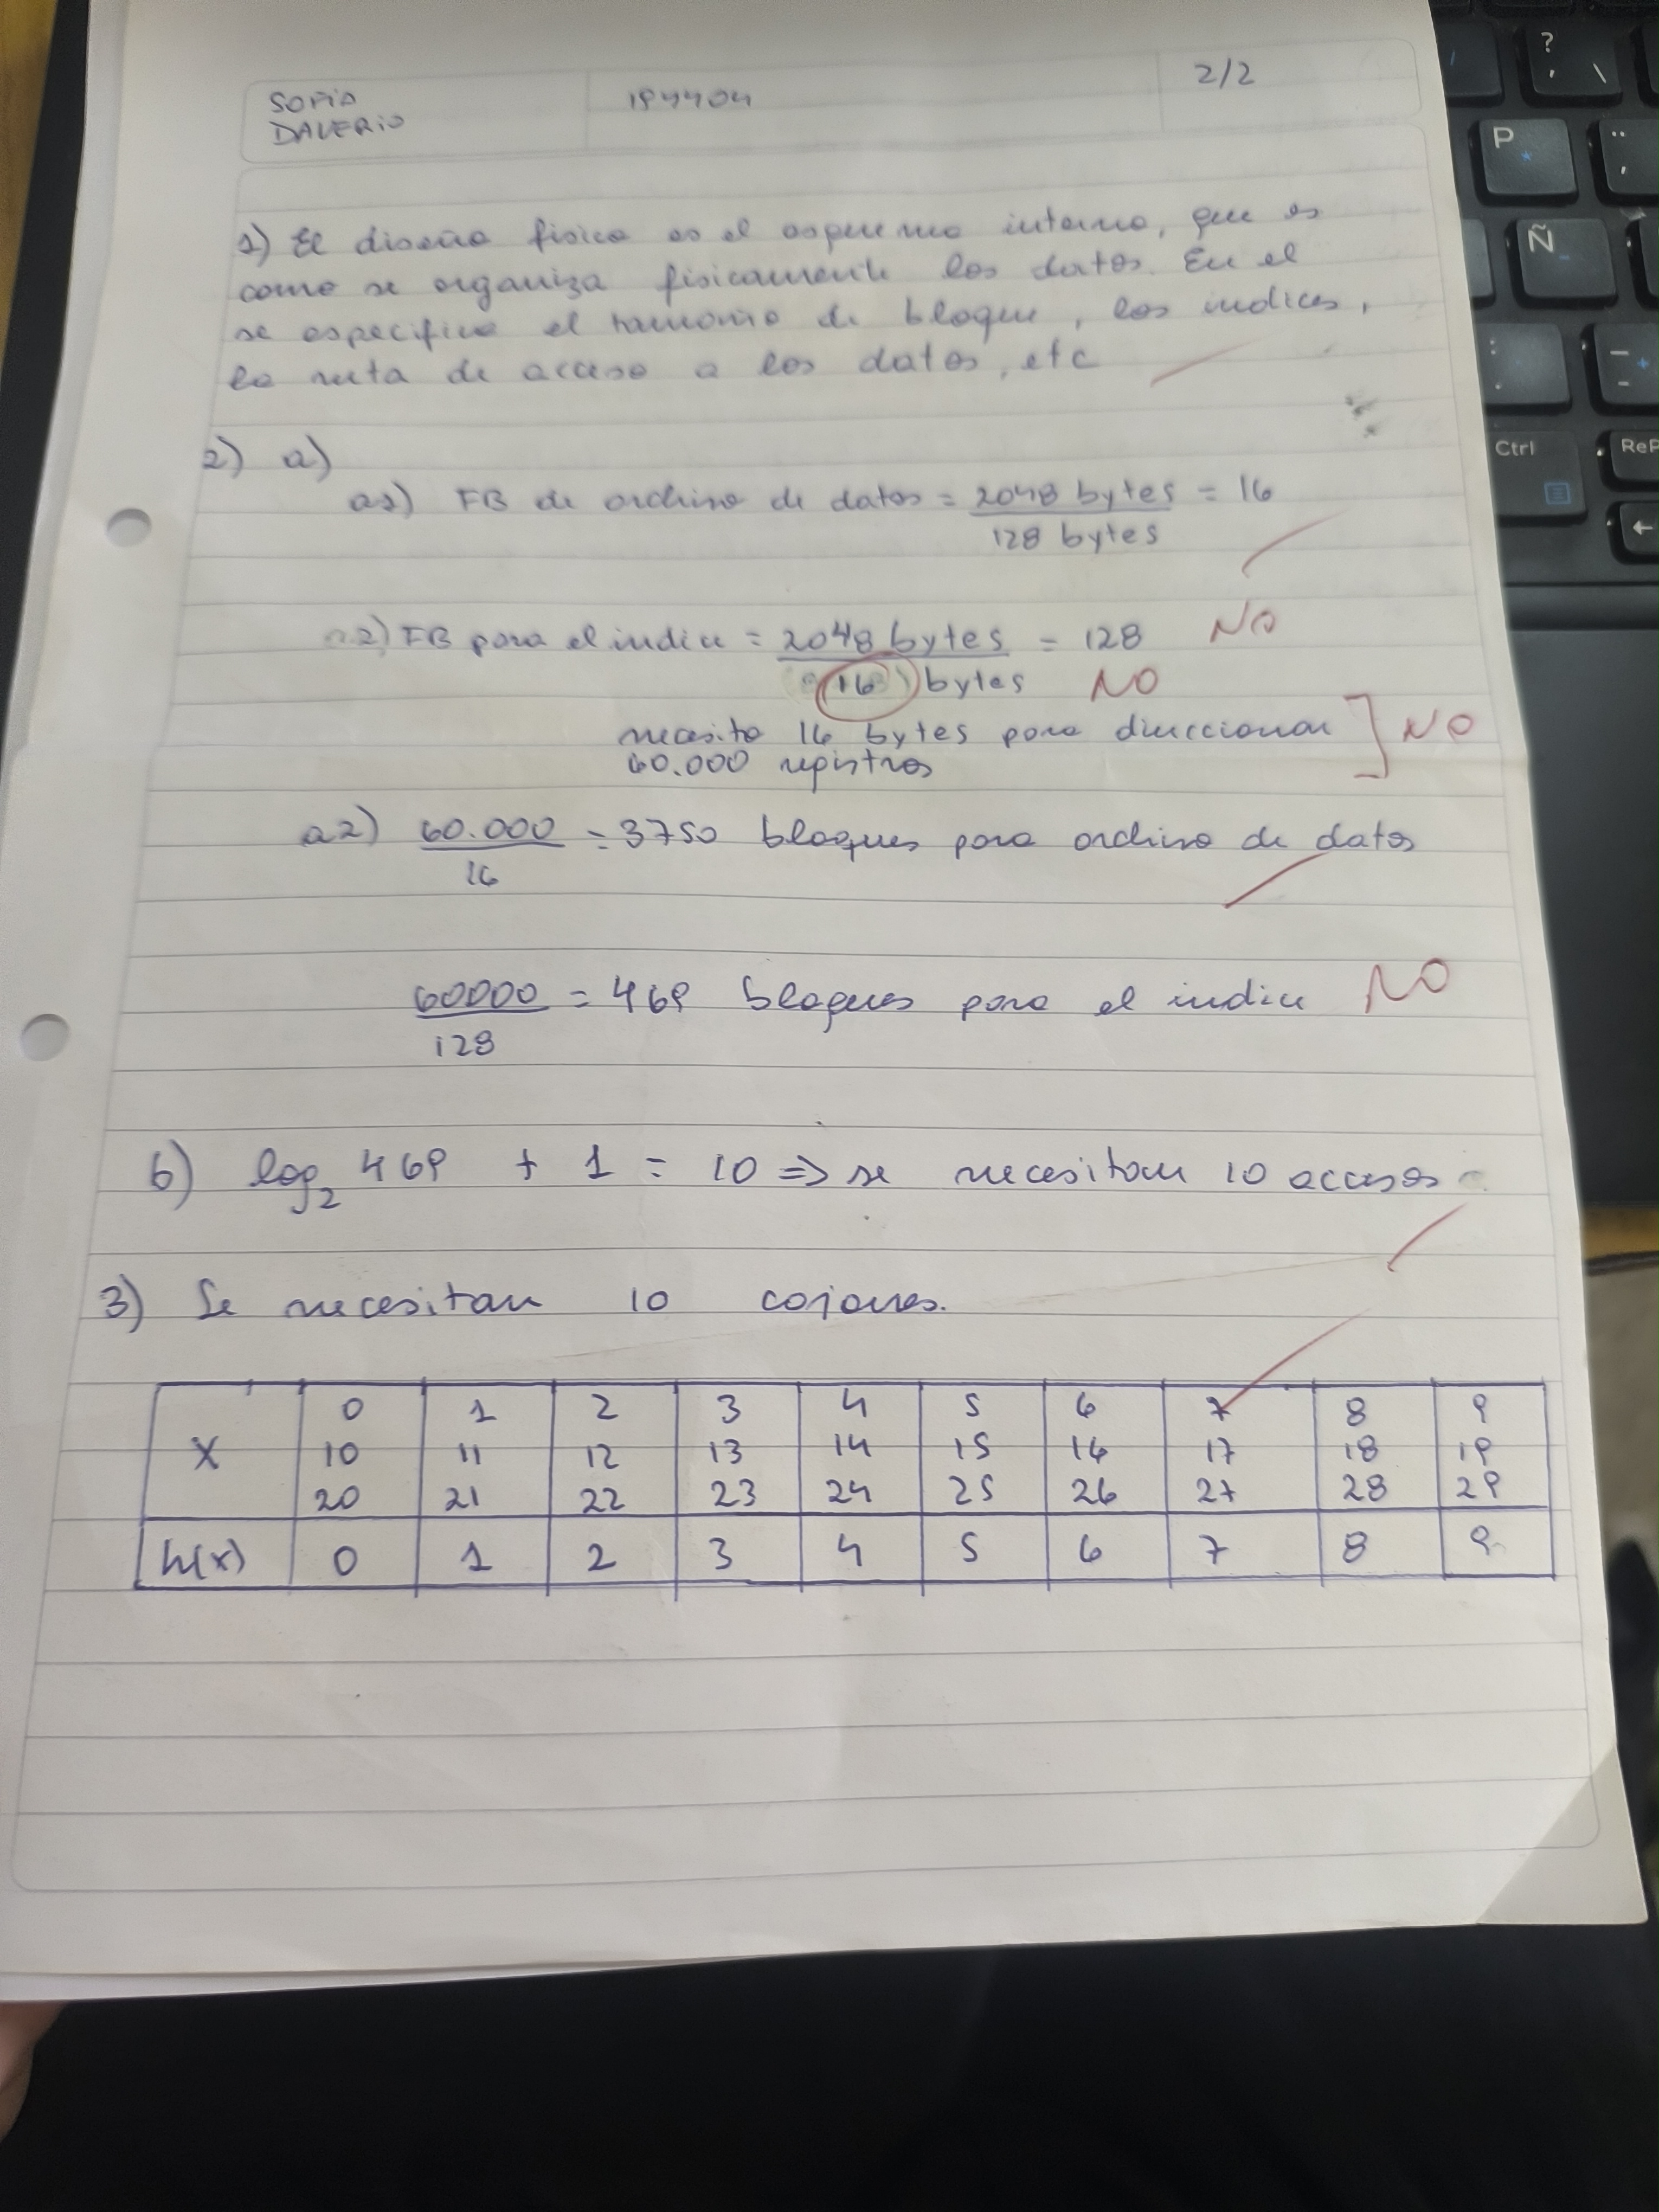 SOFIA
DAVERIO
194404
2/2
1) El diseño fisico es el esquema interno, que es
como se organiza fisicamente los datos. En el
se especifica el tamaño de bloque, los indices,
la ruta de acceso a los datos, etc
2) a)
a1) FB de archivo de datos = 2048 bytes = 16
128 bytes
a.2) FB para el indice = 2048 bytes = 128 NO
16 bytes NO
necesito 16 bytes para direccionar
60.000 registros
NO
a2) 60.000 = 3750 bloques para archivo de datos
16
60000 = 469 bloques para el indice NO
128
b) log2 469 + 1 = 10 => se necesitan 10 accesos
3) Se necesitan 10 cajones.
0 1 2 3 4 5 6 7 8 9
X 10 11 12 13 14 15 16 17 18 19
20 21 22 23 24 25 26 27 28 29
h(x) 0 1 2 3 4 5 6 7 8 9
?
,
\
P
*
¨
,
Ñ
:
.
_
-
+
Ctrl
ReP
←